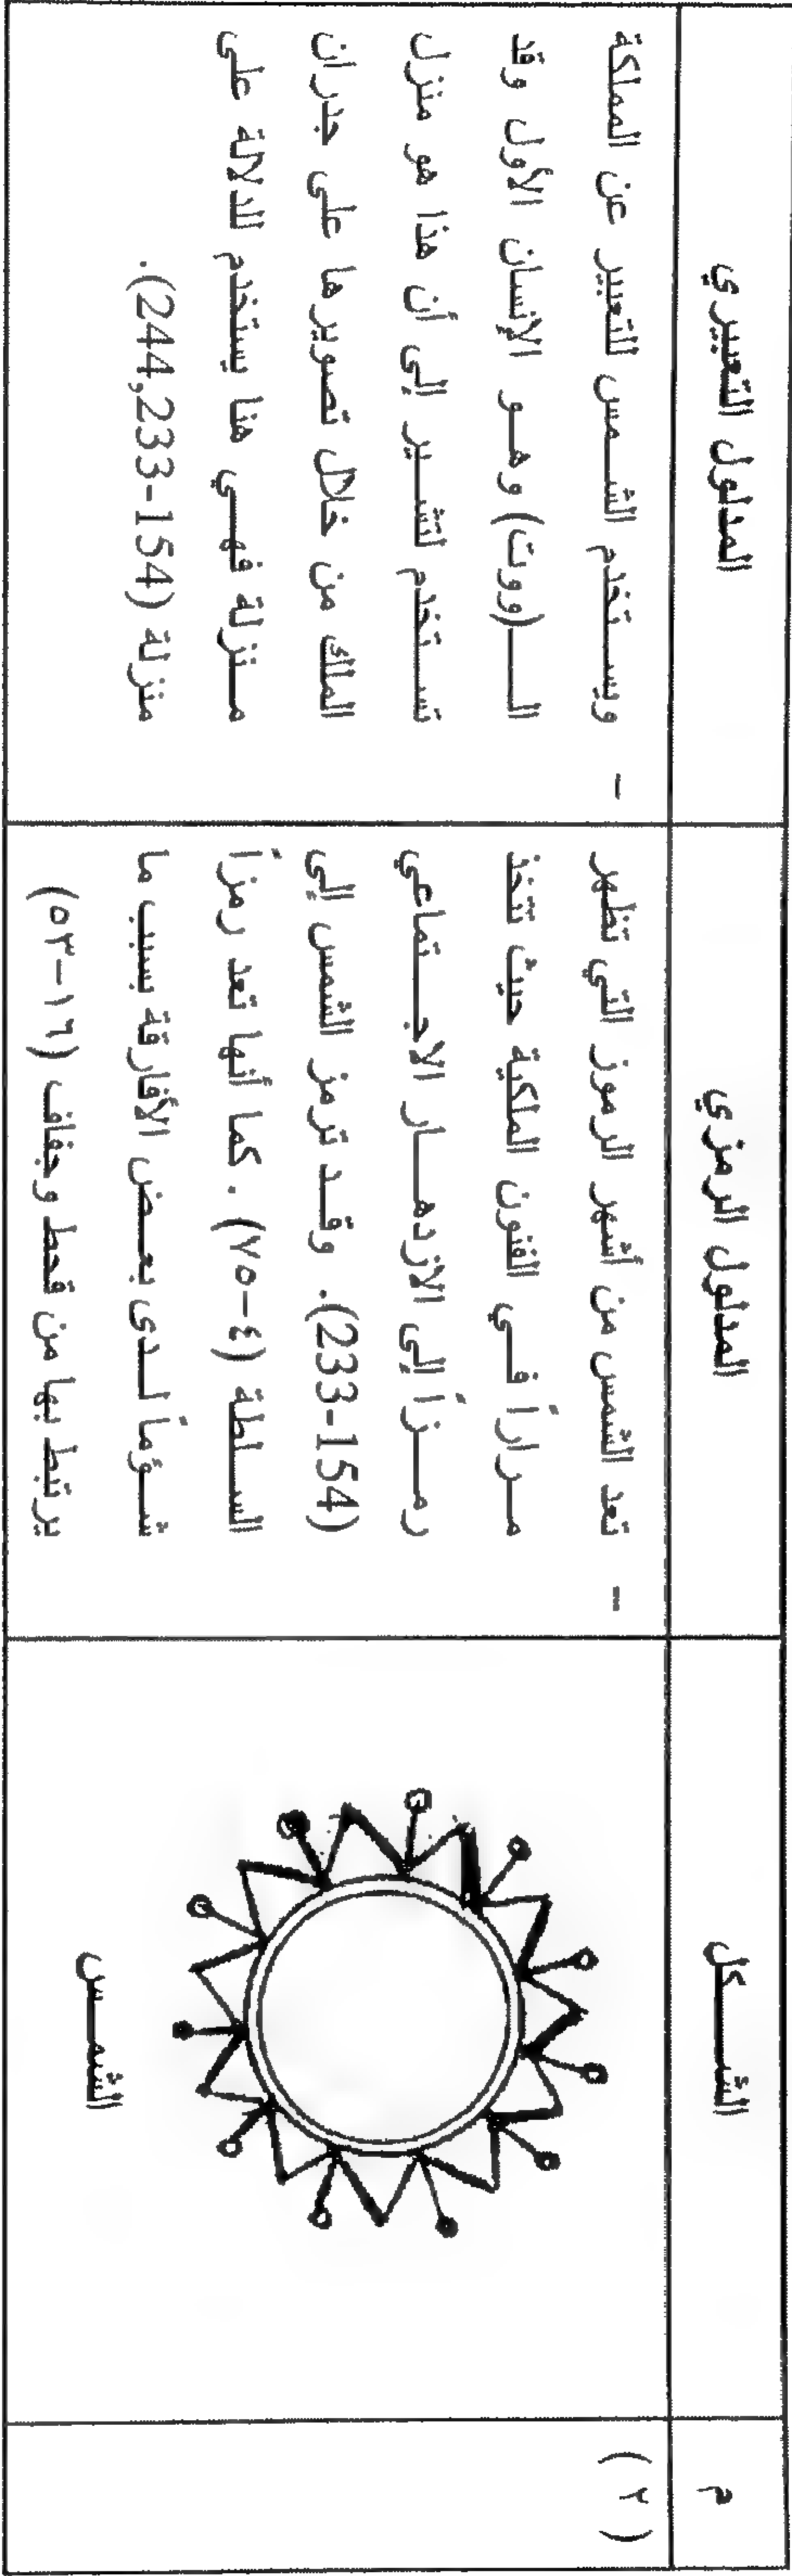 م
الشـــكل
المدلول الرمزي
المدلول التعبيري
(٢)
الشمــس
- تعد الشمس من أشهر الرموز التي تظهر
مـرارا فـي الفنون الملكية حيث تتخذ
رمــزاً إلى الازدهــار الاجــتماعي
(233-154). وقـد ترمز الشمس إلى
السـلطة (٤-٧٥). كما أنها تعد رمزاً
شـؤماً لـدى بعـض الأفارقة بسبب ما
يرتبط بها من قحط وجفاف (١٦-٥٣)
- ويسـتخدم الشـمس للتعبير عن المملكة
الــ(ووت) وهـو الإنسان الأول وقد
تسـتخدم لتشـير إلى أن هذا هو منزل
الملك من خلال تصويرها على جدران
مـنزله فهـي هنا يستخدم للدلالة على
منزلة (154-244,233).